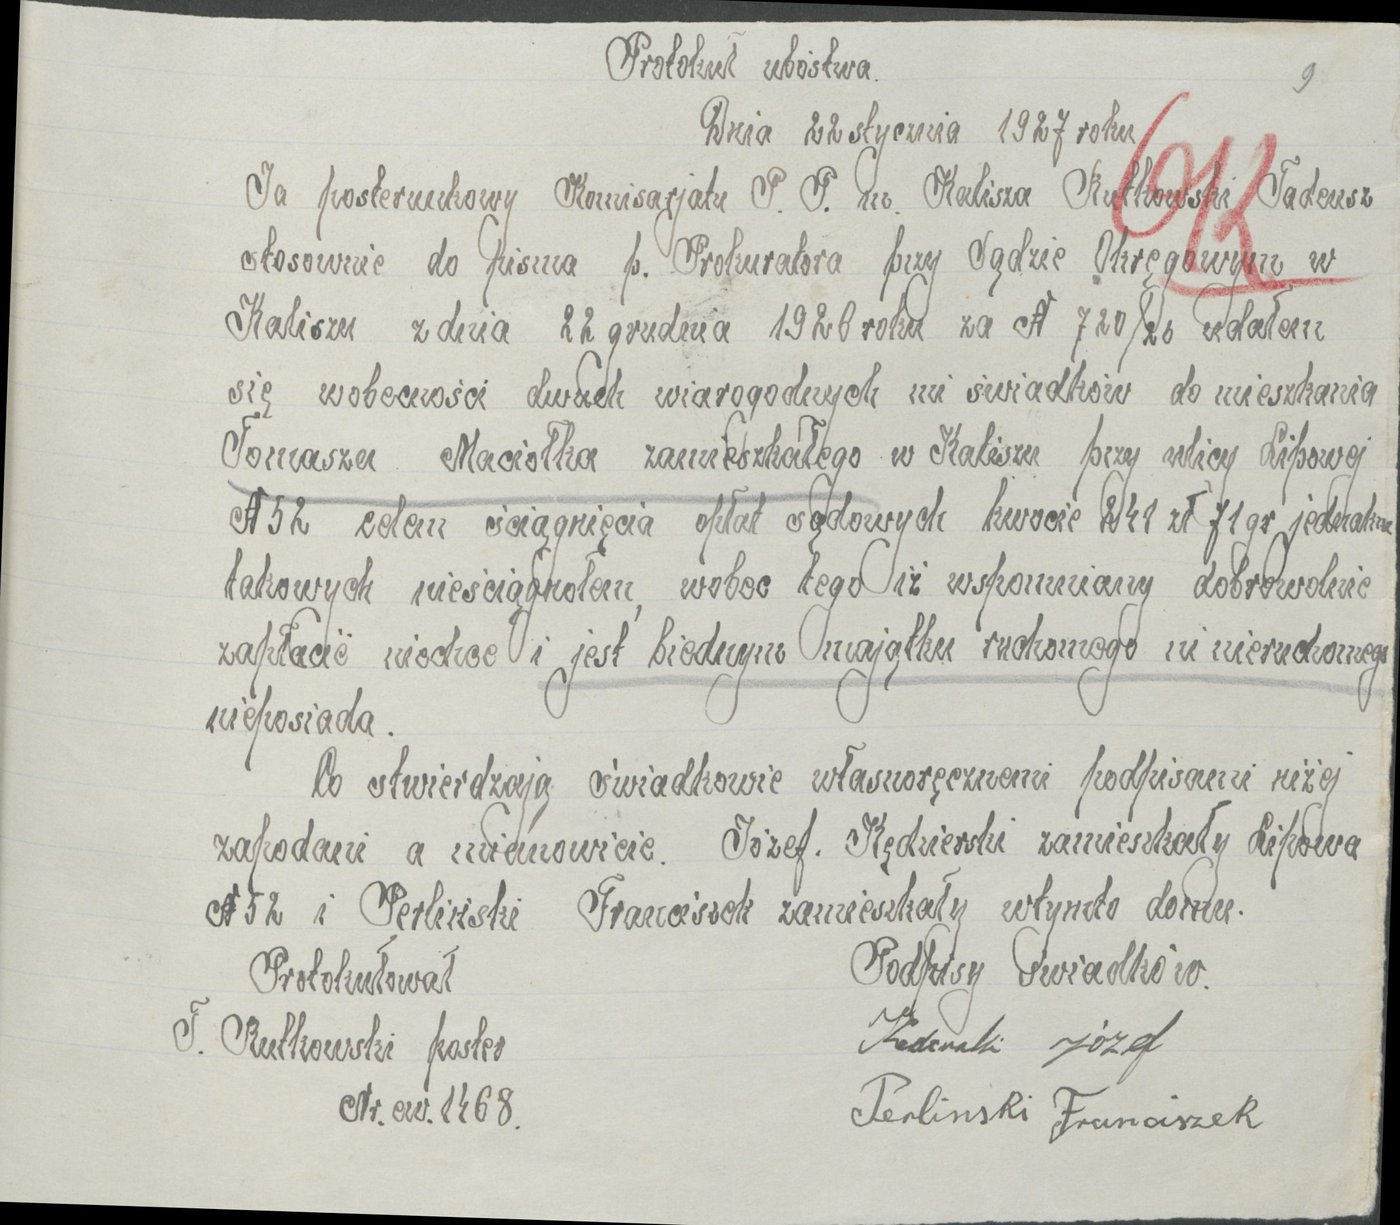 Protokuł ubóstwa.
9
Dnia 22 stycznia 1927 roku
Ja posterunkowy Komisarjatu P. P. m. Kalisza Rutkowski Tadeusz
stosownie do pisma p. Prokuratora przy Sądzie Okręgowym w
Kaliszu z dnia 22 grudnia 1926 roku za № 720/26 udałem
się wobecności dwuch wiarogodnych mi świadków do mieszkania
Tomasza Maciołka zamieszkałego w Kaliszu przy ulicy Lipowej
№ 52 celem ściągnięcia opłat sądowych kwocie 241 zł 71 gr jednakże
takowych nieściągnołem, wobec tego iż wspomniany dobrowolnie
zapłacić niechce i jest biednym majątku ruchomego ni nieruchomego
nieposiada.
Co stwierdzają świadkowie własnoręcznemi podpisami niżej
zapodani a mianowicie. Józef. Kędzierski zamieszkały Lipowa
№ 52 i Perliński Franciszek zamieszkały wtymto domu.
Protokułował Podpisy świadków.
T. Rutkowski poster Józef
Nr. ew. 1468. Perlinski Franciszek